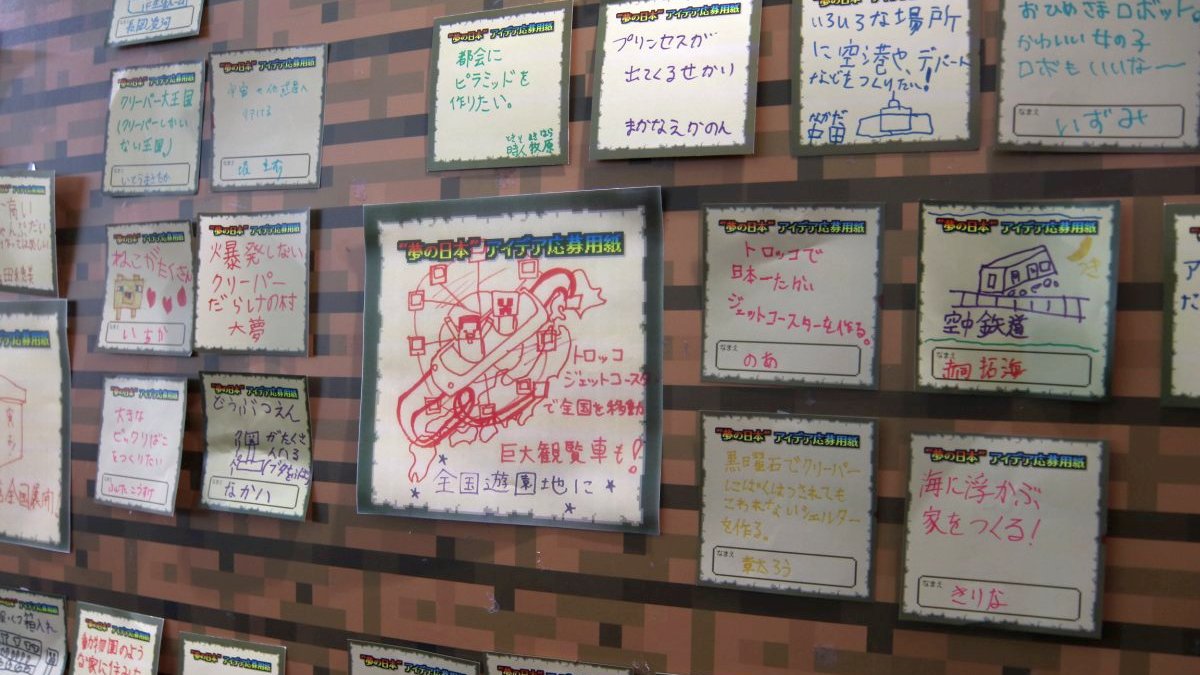 長岡美河
"夢の日本"アイデア応募用紙
クリーパー大王国
(クリーパーしかい
ない王国)
"夢の日本"アイデア応募用紙
宇宙や他惑星へ
なまえ
"夢の日本"アイデア応募用紙
都会に
ピラミッドを
作りたい。
牧原
"夢の日本"アイデア応募用紙
プリンセスが
出てくるせかい
まかなえかのん
いろいろな場所
に空港や、デパート
などをつくりたい!
なかだ
中田
おひめさまロボット
かわいい女の子
ロボもいいな〜
いずみ
"夢の日本"アイデア応募用紙
ねこがたくさん
いちか
"夢の日本"アイデア応募用紙
火暴発しない
クリーパー
だらけの村
大夢
"夢の日本"アイデア応募用紙
トロッコ
ジェットコースター
で全国を移動
巨大観覧車も!
全国遊園地に
"夢の日本"アイデア応募用紙
トロッコで
日本一たかい
ジェットコースターを作る。
なまえ
のあ
"夢の日本"アイデア応募用紙
つき
空中鉄道
なまえ
拓海
"夢の日本"アイデア応募用紙
大きな
ビックリばこ
をつくりたい
"夢の日本"アイデア応募用紙
どうぶつえん
がたくさ
なかハ
"夢の日本"アイデア応募用紙
黒曜石でクリーパー
にばくはつされても
こわれないシェルター
を作る。
なまえ
"夢の日本"アイデア応募用紙
海に浮かぶ
家をつくる!
なまえ
きりな
全国展開
"夢の日本"アイデア応募用紙
動物園のよう
な家に住みた
"夢の日本"アイデア応募用紙
"夢の日本"アイデア応募用紙
"夢の日本"アイデア応募用紙